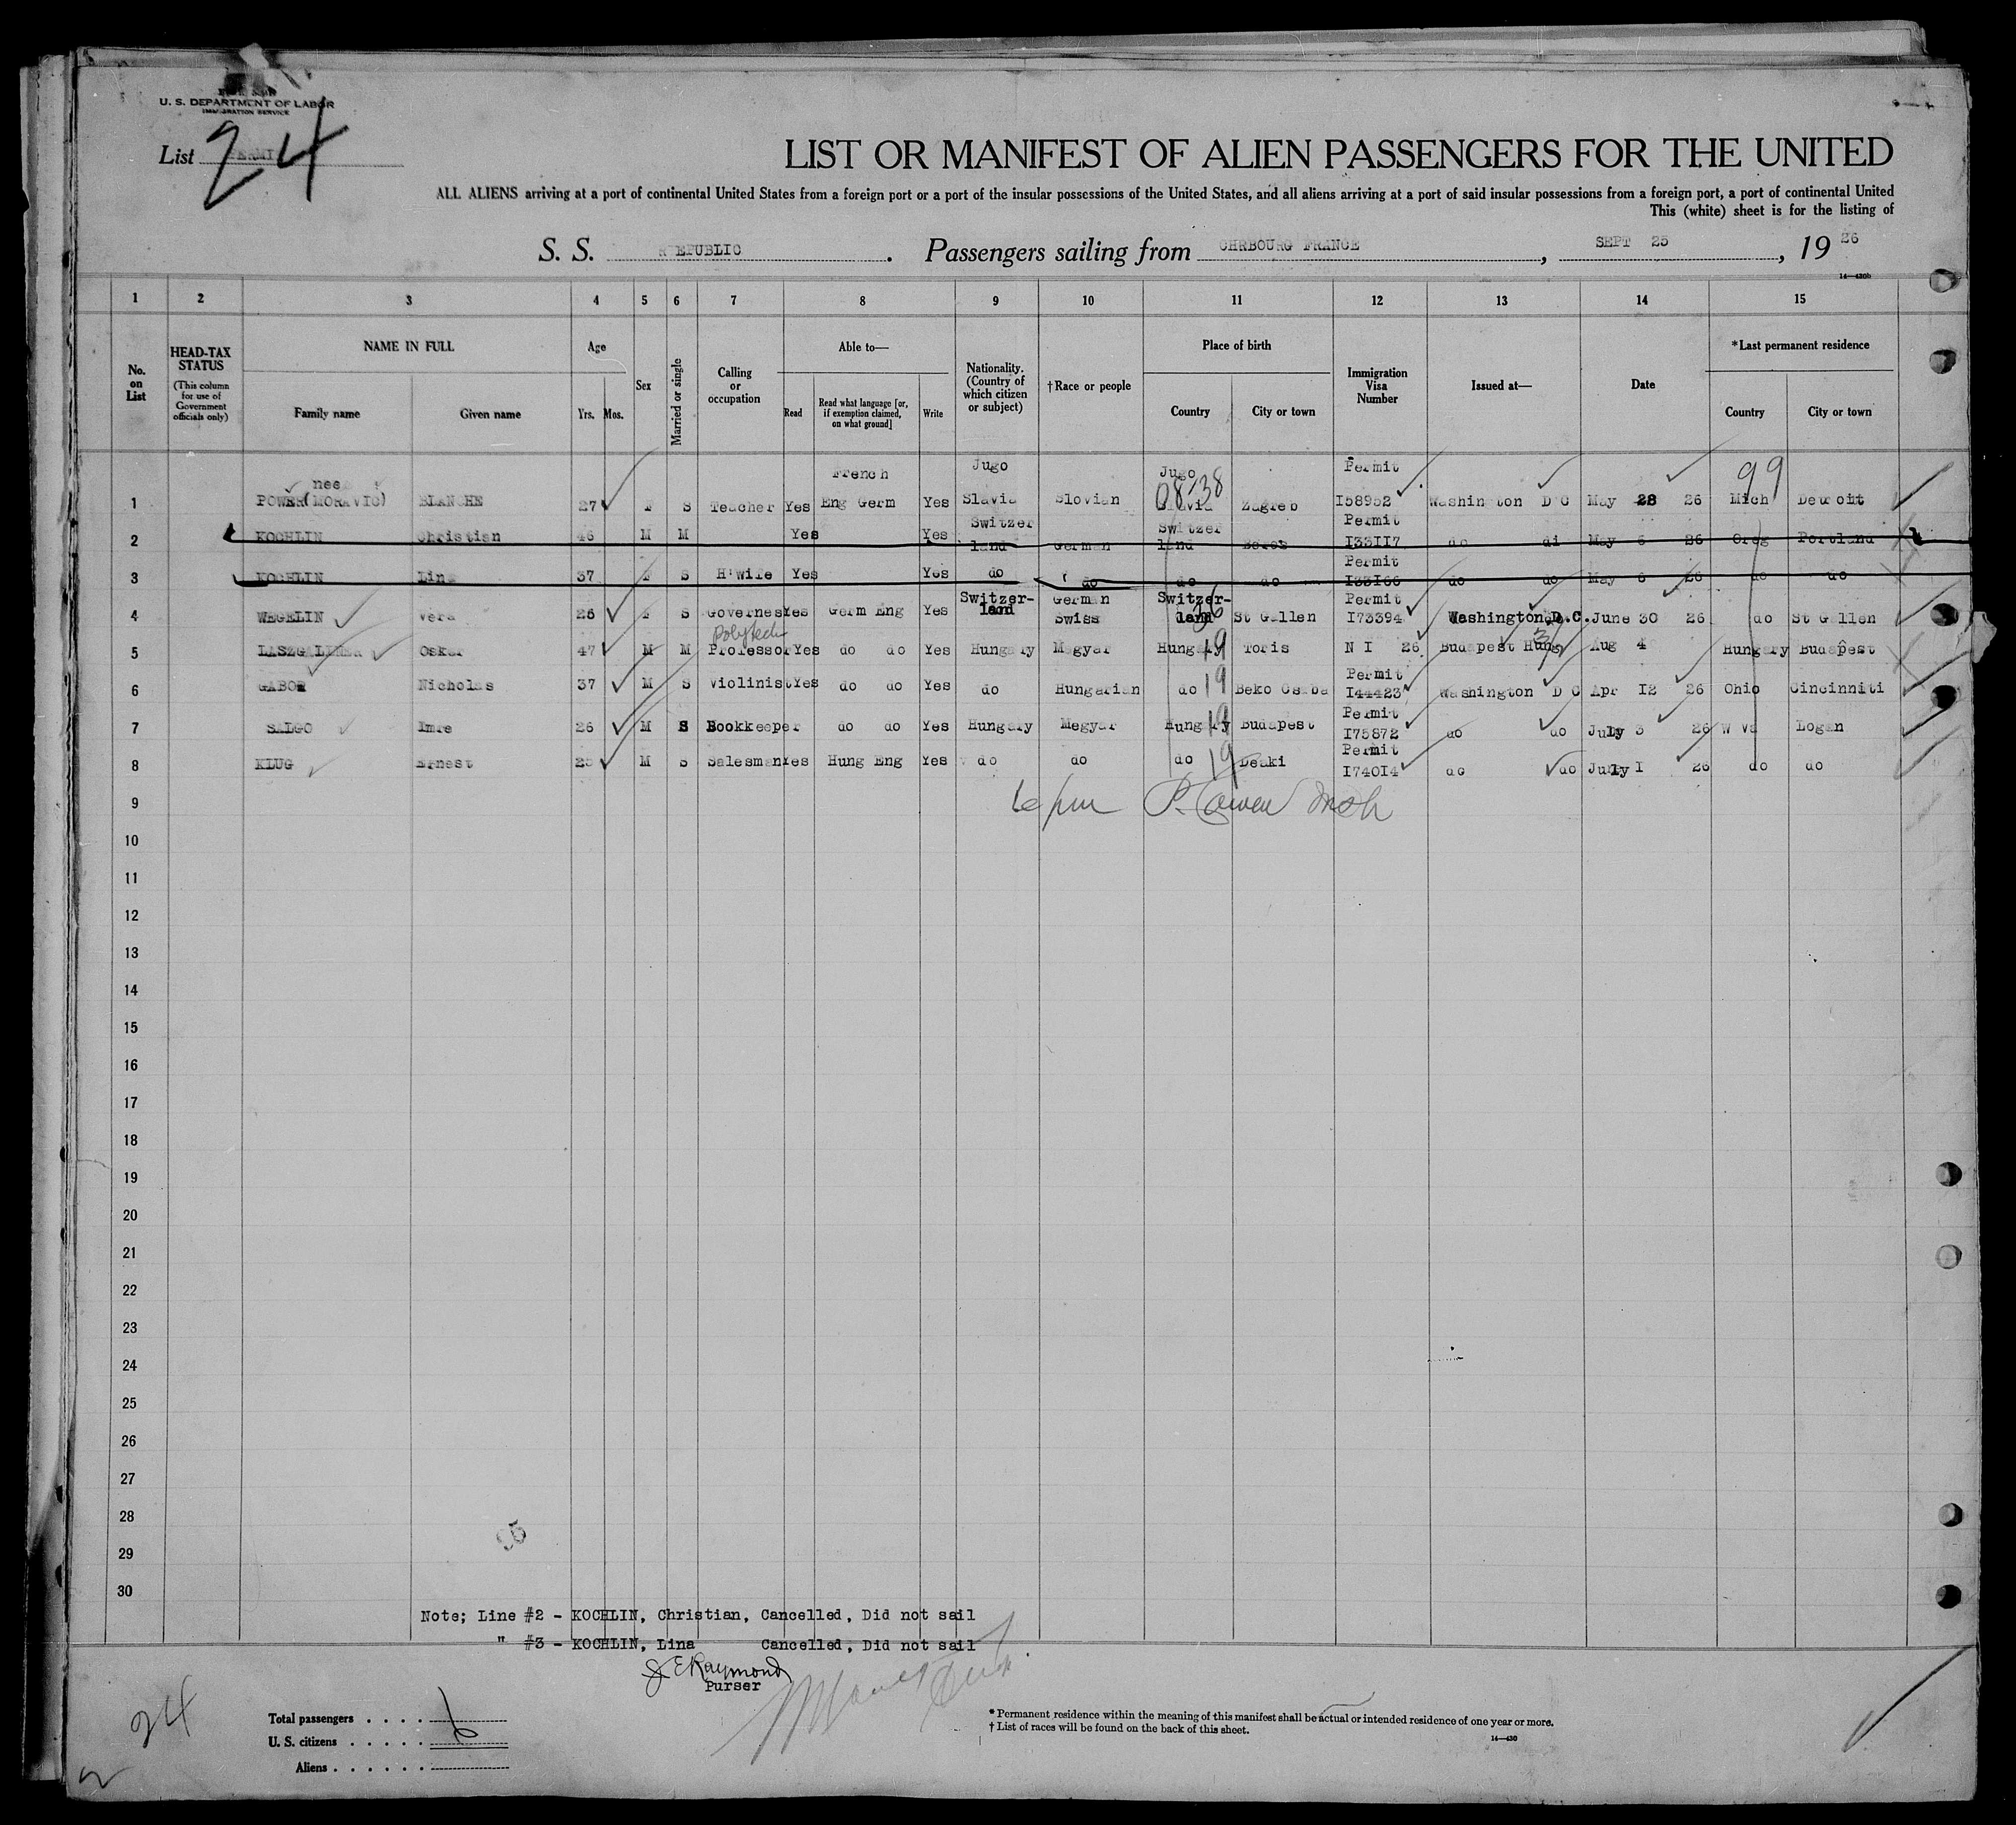 U. S. DEPARTMENT OF LABOR
IMMIGRATION SERVICE
List 24
LIST OR MANIFEST OF ALIEN PASSENGERS FOR THE UNITED
ALL ALIENS arriving at a port of continental United States from a foreign port or a port of the insular possessions of the United States, and all aliens arriving at a port of said insular possessions from a foreign port, a port of continental United
This (white) sheet is for the listing of
S. S. REPUBLIC . Passengers sailing from CHRBOURG FRANCE , SEPT 25 , 19 26
14—430b
1 2 3 4 5 6 7 8 9 10 11 12 13 14 15
No. on List
HEAD-TAX STATUS (This column for use of Government officials only)
NAME IN FULL Family name Given name
Age Yrs. Mos.
Sex
Married or single
Calling or occupation
Able to— Read Read what language [or, if exemption claimed, on what ground] Write
Nationality. (Country of which citizen or subject)
†Race or people
Place of birth Country City or town
Immigration Visa Number
Issued at—
Date
*Last permanent residence Country City or town
nee French Jugo Jugo Permit 99
1 POWER(MORAVIC) BLANCHE 27 F S Teacher Yes Eng Germ Yes Slavia Slovian Slavia 08-38 Zagreb I58952 Washington D C May 28 26 Mich Detroit
Switzer Switzer Permit
2 KOCHLIN Christian 46 M M Yes Yes land German land I33II7 do di May 6 26 Oreg Portland
Permit
3 KOCHLIN Lina 37 F S H'wife Yes Yes do do do do I33I66 do do May 6 26 do do
Switzer- German Switzer- Permit
4 WEGELIN Vera 26 F S Governess Yes Germ Eng Yes land Swiss land 36 St Gallen I73394 Washington D.C. June 30 26 do St Gallen
Polytech
5 Oskar 47 M M Professor Yes do do Yes Hungary Magyar Hungary 19 Toris N I 26 Budapest Hung Aug 4 Hungary Budapest
Permit
6 GABOR Nicholas 37 M S Violinist Yes do do Yes do Hungarian do 19 Beko Csaba I44423 Washington D C Apr I2 26 Ohio Cincinniti
Permit
7 SALGO Imre 26 M S Bookkeeper do do Yes Hungary Megyar Hungary 19 Budapest I75872 do do July 3 26 W Va Logan
Permit
8 KLUG Ernest M S Salesman Yes Hung Eng Yes do do do 19 Deaki I740I4 do do July I 26 do do
9
10
11
12
13
14
15
16
17
18
19
20
21
22
23
24
25
26
27
28
29
30
95
Note; Line #2 - KOCHLIN, Christian, Cancelled, Did not sail
" #3 - KOCHLIN, Lina Cancelled, Did not sail
Raymond
Purser
24
Total passengers . . . . 6
U. S. citizens . . . . .
Aliens . . . . . .
* Permanent residence within the meaning of this manifest shall be actual or intended residence of one year or more.
† List of races will be found on the back of this sheet.
14—430